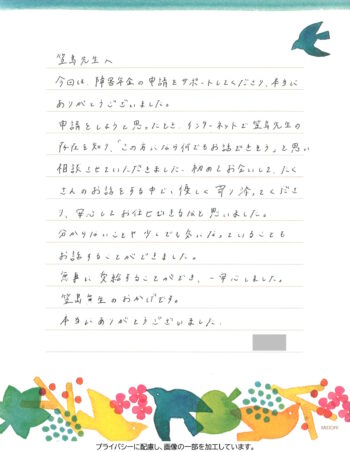 笠島先生へ
今回は、障害年金の申請をサポートしてくださり、本当に
ありがとうございました。
申請をしようと思ったとき、インターネットで笠島先生の
存在を知り、「この方になら何でもお話できそう」と思い
相談させていただきました。初めてお会いして、たく
さんのお話をする中で、優しく寄り添ってくださ
り、安心してお任せできるなと思いました。
分からないことや少しでも気になっていることも
お話することができました。
無事に受給することができ、一安心しました。
笠島先生のおかげです。
本当にありがとうございました。
MIDORI
プライバシーに配慮し、画像の一部を加工しています。